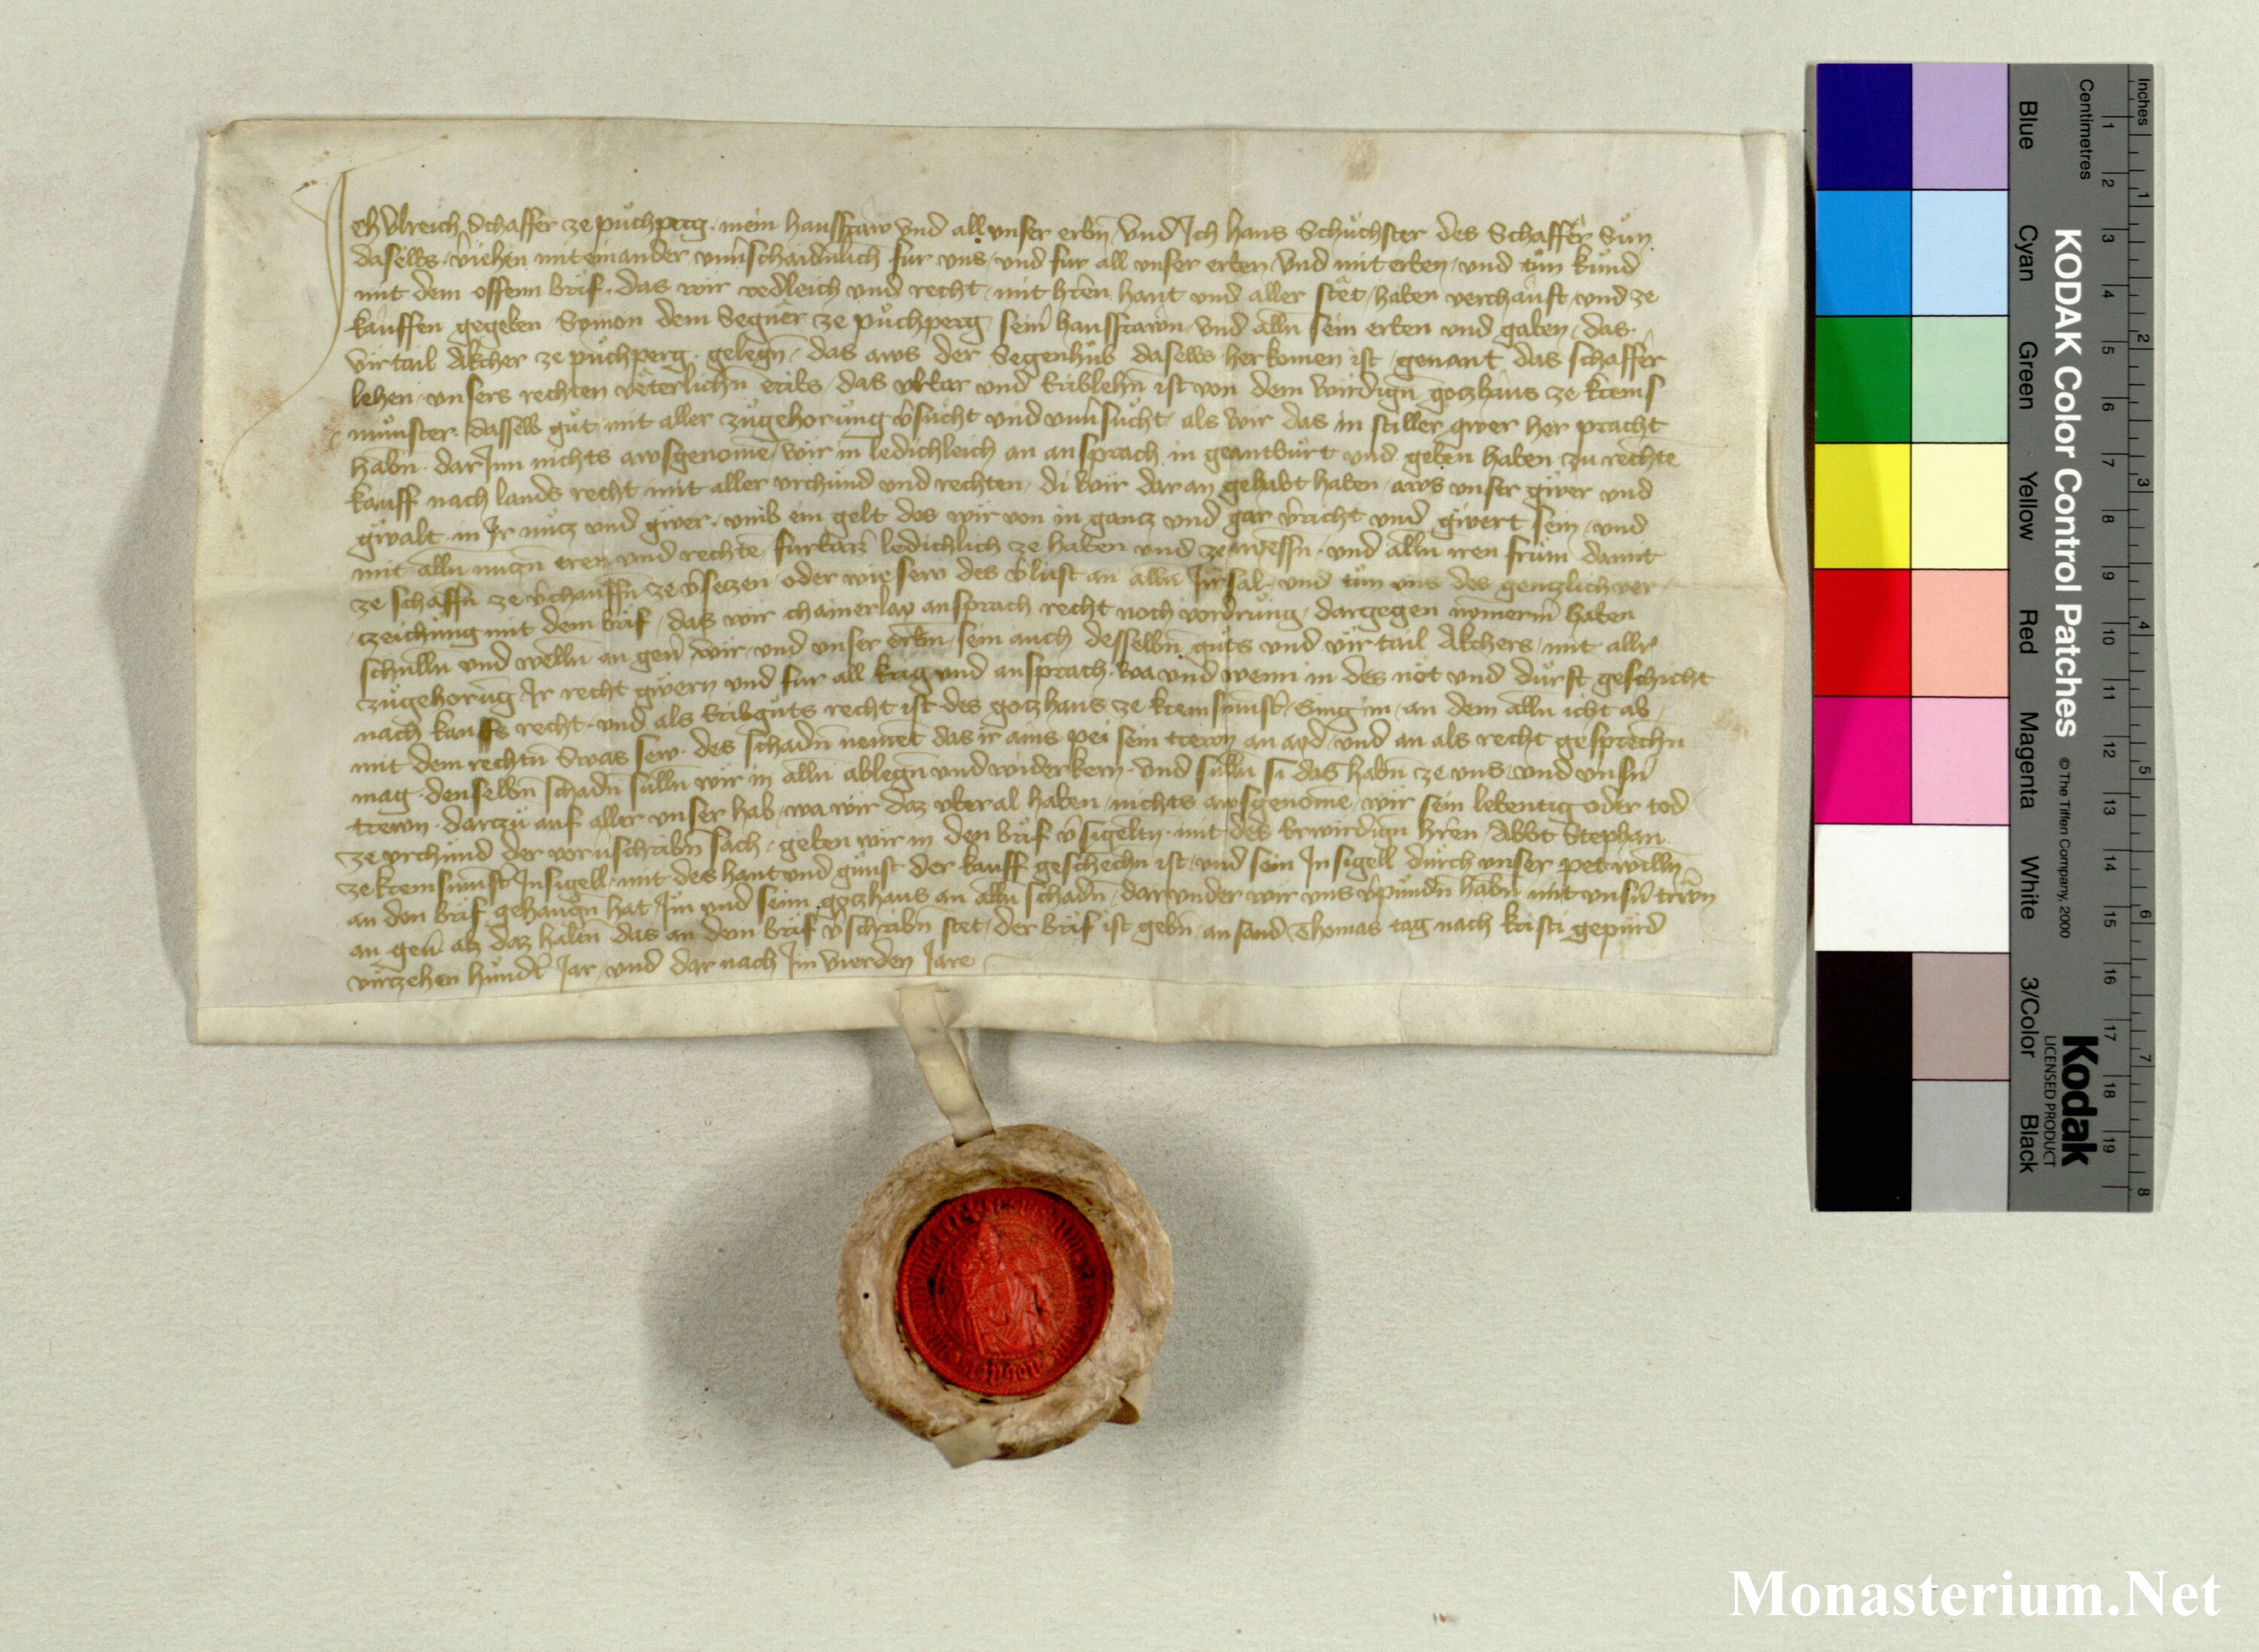 Ich Vlreich Schaffer ze puͤchperg mein hausfraw vnd all vnser erbn̄ Vnd Ich hans Schuͤchster des Schaffer Sun
daselbs v̄iehen mit einander vnu̅schaidnlich fur vns vnd fur all vnser erben vnd miterben vnd tün kund
mit dem offenn braͤf das wir redleich vnd recht mit hren̄ hant vnd aller staͤt haben verchauft vnd ze
kauffen gegeben Symon dem Segner ze puͤchperg sein̄ hausfrawn vnd alln̄ sein erben vnd gaben das
virtail Akcher ze puͤchperg gelegn̄ das aws der Segenhub daselbs herkomen ist genant das schaffer
lehen vnsers rechten veterlichn̄ eribs das vrbar und Eriblehn̄ ist von dem wirdign̄ gotzhaus ze krems
munster dasselb guͤt mit aller zuͤgehorung v̄sucht vnd vnu̅sucht als wir das in stiller gwer her pracht
habn̄ dar Inn nichts awsgenome̅ wir in ledichleich an ansprach in geantburt vnd geben haben zu rechte̅
kauff nach lands recht mit aller vrchund vnd rechten di wir dar an gehabt haben aws vnser gwer vnd
gwalt in Ir nutz vnd gwer vmb ein gelt des wir von in gantz vnd gar v̄richt vnd gwert sein vnd
mit alln̄ nutzn̄ eren vnd rechte̅ furbaz ledichlich ze haben vnd ze niessn̄ vnd alln̄ iren frum damit
ze schaffn̄ ze v̄chauffn̄ ze v̄setzen oder wie sew des v̄lust an alln̄ Irrsal vnd tun vns des gentzlich ver
tzeichnung mit dem braͤf das wir chainerlay ansprach recht noch vordrung dargegen nymerm̄ haben
schulln̄ vnd welln̄ an geu̅ wir vnd vnser erbn̄ sein auch desselbn̄ guts vnd virtail Akchers mit aller
zuͤgehorūg Ir recht gwern vnd fur all krieg vnd ansprach wa vnd wenn in des not vnd durft geschicht
nach kauffs recht vnd als Eribguts recht ist des gotzhaus ze kremsmūst̄ Ging in an dem alln̄ icht ab
mit dem rechtn̄ Swas sew des schadn̄ nement das ir ains pei sein trewn an ayd vnd an als recht gesprechn̄
mag denselbn̄ schadn̄ sulln̄ wir in alln̄ ablegn̄ vnd widerkern vnd sulln̄ si das habn̄ ze vns vnd vnsn̄
trewn dartzuͤ auf aller vnser hab wa wir daz vberal haben nichts awsgenome̅ wir sein lebentig oder tod
ze vrchund der vorn̄schribn̄ sach geben wir in den braͤf v̄sigeltn̄ mit des Erwirdign̄ hren̄ Abbt Stephan
ze kremsmu̅st̄ Insigell mit des hant vnd gunst der kauff geschechn̄ ist vnd sein Insigell durch vnser pet willn̄
an den braͤf gehangn̄ hat Im vnd seim gotzhaus an alln̄ schadn̄ darvnder wir vns v̄pundn̄ habn̄ mit vnsn̄ trewn̄
an geu̅ als daz haltn̄ das an dem braͤf v̄schribn̄ stet der braͤf ist gebn̄ an sand Thomas tag nach kristi gepurd
virtzehen hundt̄ Iar vnd dar nach Im vierden Iare
KODAK Color Control Patches
© The Tiffen Company, 2000
Kodak
LICENSED PRODUCT
Inches
Centimetres
1 2 3 4 5 6 7 8
1 2 3 4 5 6 7 8 9 10 11 12 13 14 15 16 17 18 19
Blue
Cyan
Green
Yellow
Red
Magenta
White
3/Color
Black
Monasterium.Net